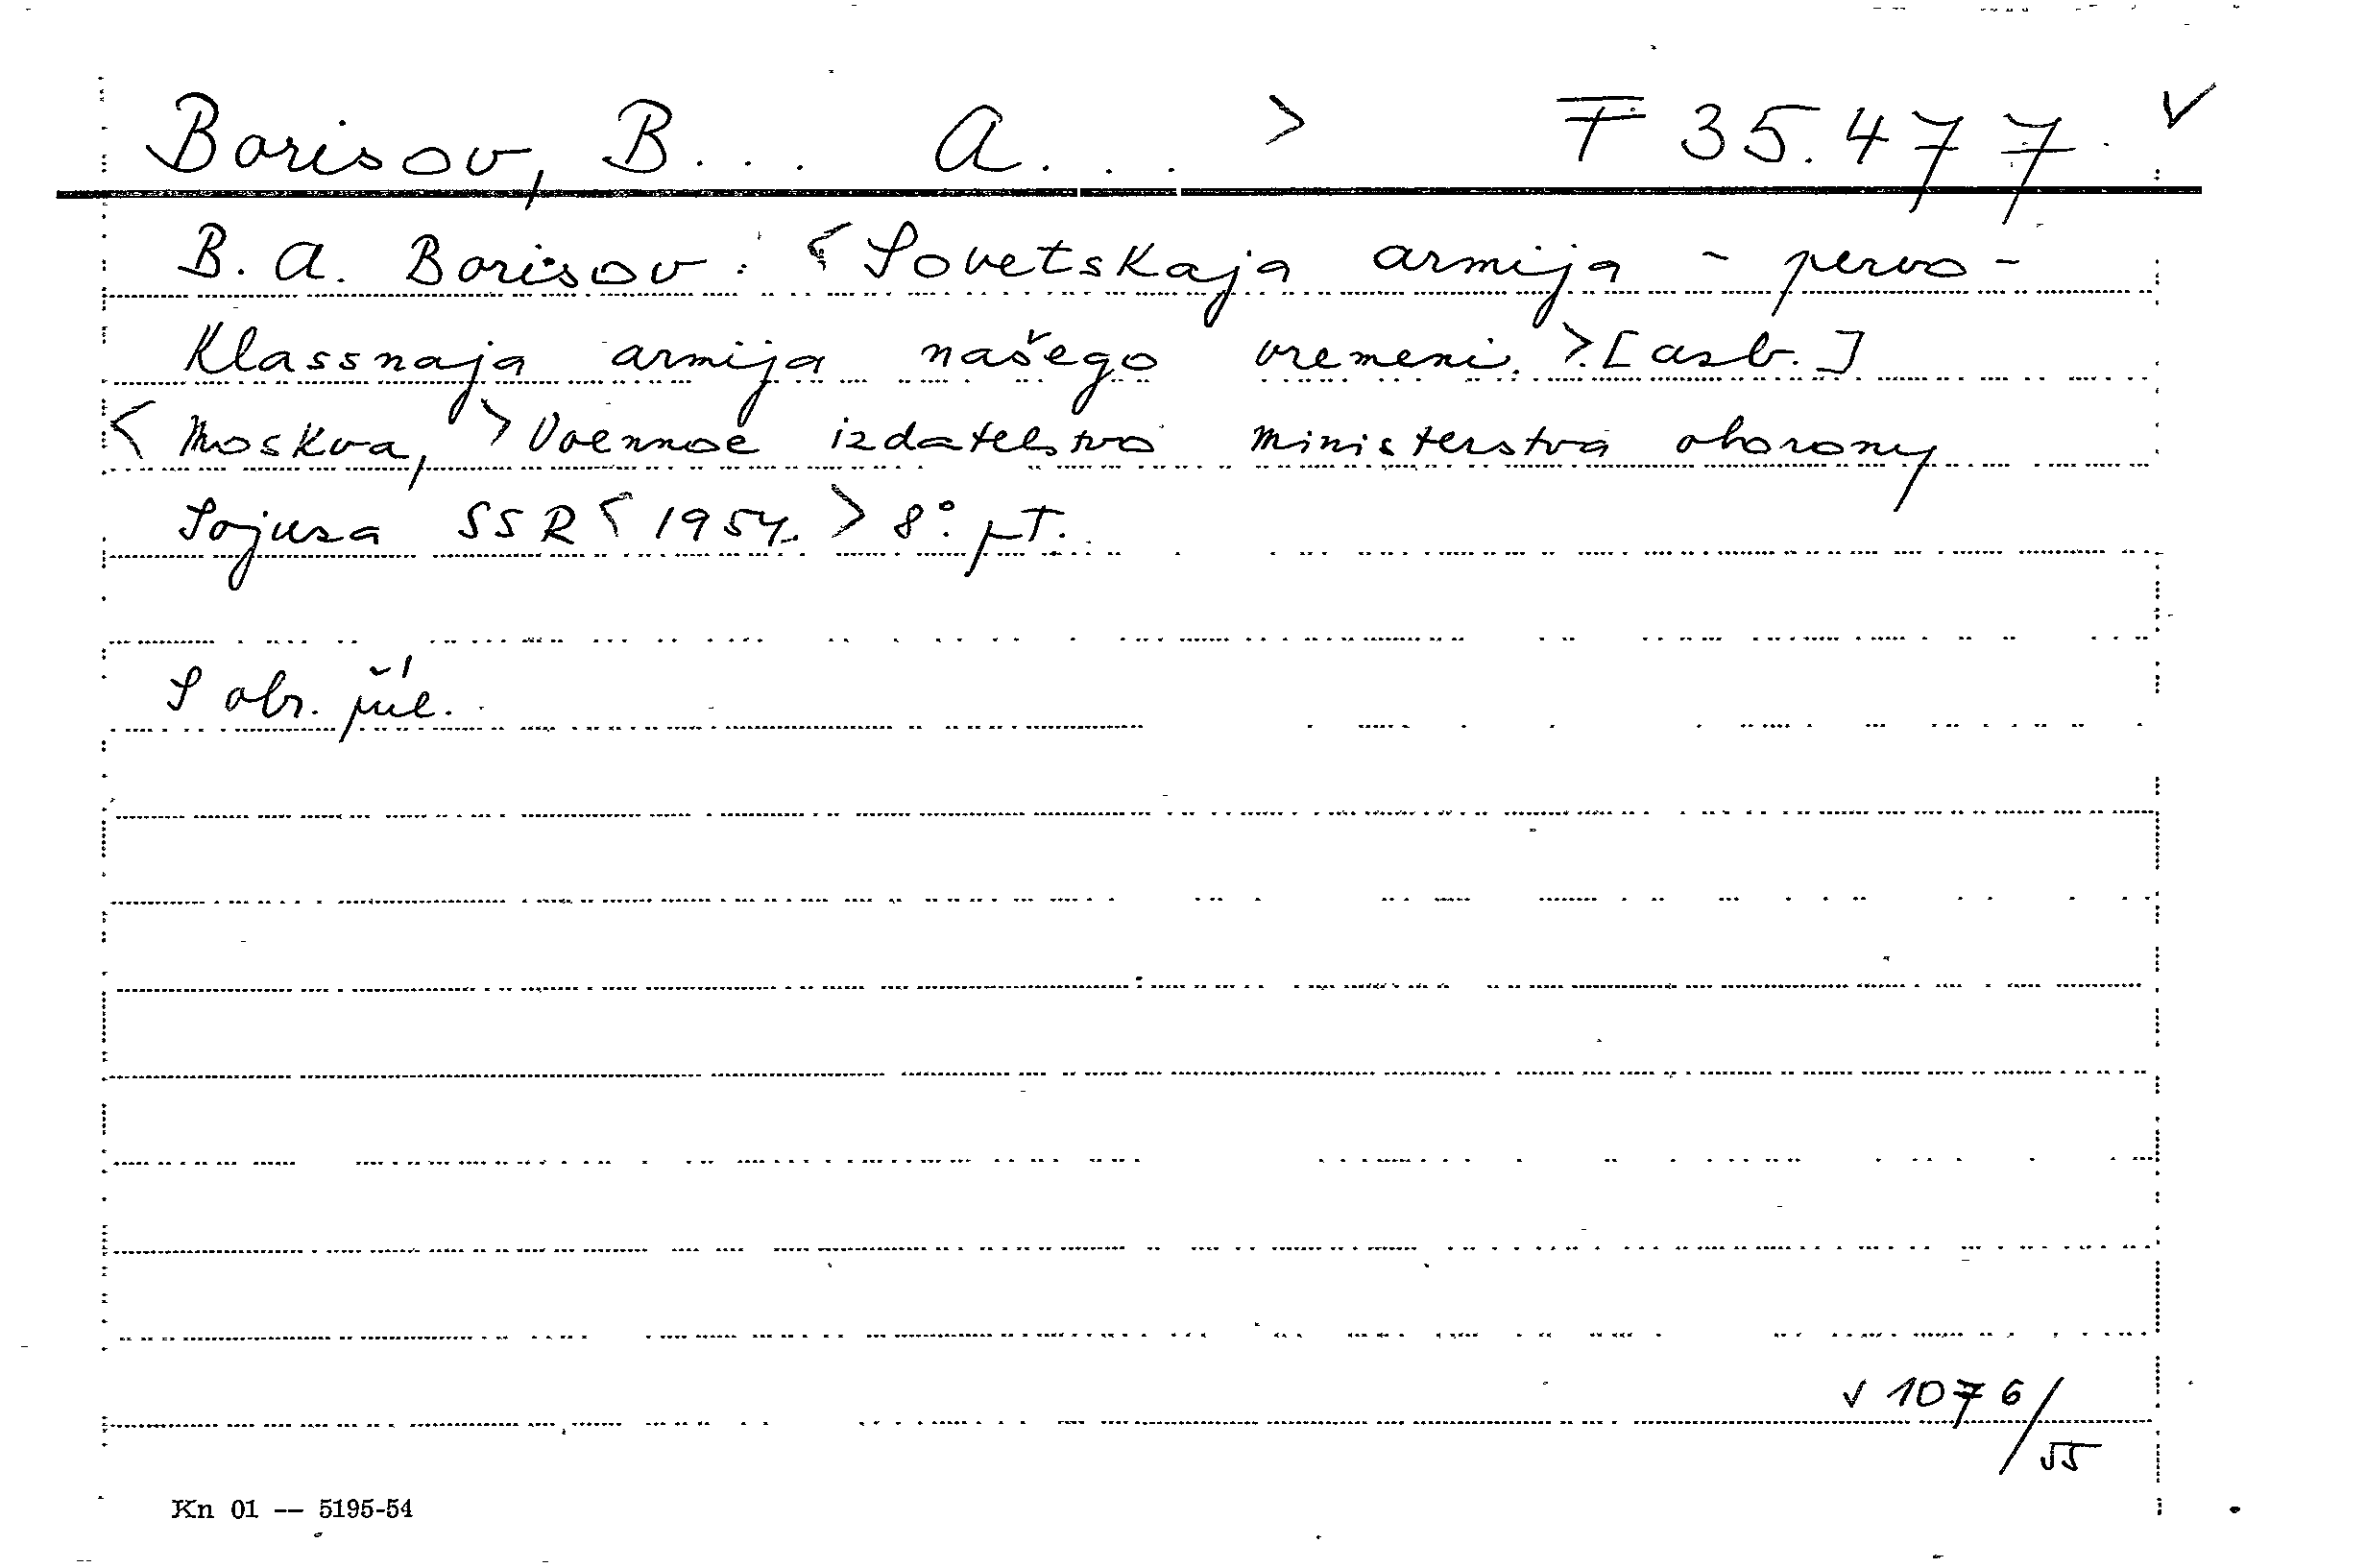 Borisov, B... A... > F 35.477. ✓
B. A. Borisov: <Sovetskaja armija - pervo-
klassnaja armija našego vremeni.> [azb.]
<Moskva,> Voennoe izdatelstvo ministerstva oborony
Sojuza SSR <1954.> 8°. pT.
S obr. příl.
✓ 1076/55
Kn 01 -- 5195-54